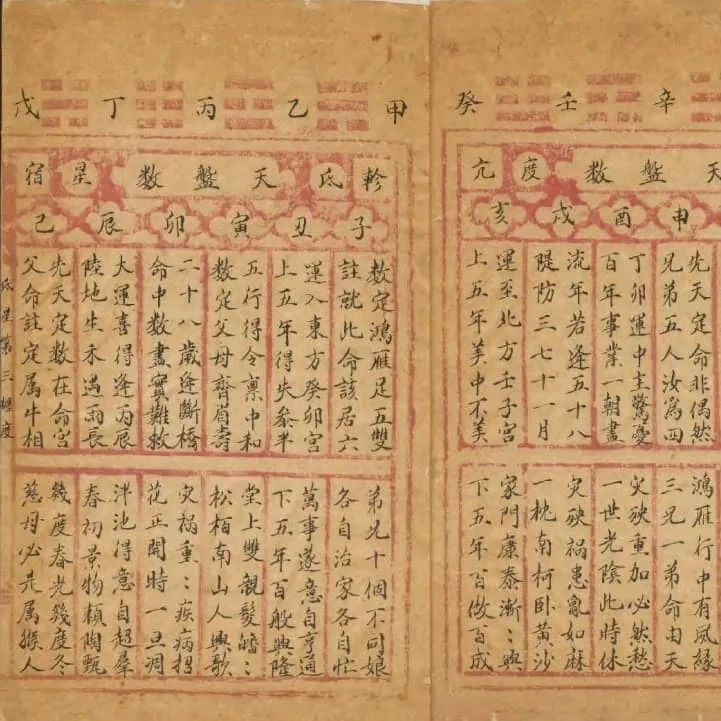 辛壬癸
天数度亢
申酉戌亥
先天定命非偶然
兄弟五人汝為四
丁卯運中主驚憂
百年事業一朝盡
流年若逢五十八
隄防三七十一月
運至北方壬子宮
上五年美中不美
鴻雁行中有夙緣
三兄一弟命由天
灾殃重加必然愁
一世光陰此時休
灾殃禍患亂如麻
一枕南柯卧黄沙
家門康泰漸:興
下五年百做百成
甲乙丙丁戊
軫氐天盤数星宿
子丑寅卯辰己
数定鴻雁足五雙
註就此命該居六
運入東方癸卯宮
上五年得失叅半
五行得令禀中和
数定父母齊眉壽
二十八歲逢斷橋
命中数盡實難救
大運喜得逢丙辰
陸地生禾遇雨長
先天定数在命宮
父命註定属牛相
弟兄十個不同娘
各自治家各自忙
萬事遂意自亨通
下五年百般興隆
堂上雙親髮皤:
松柏南山人興歌
灾禍重:疾病招
花正開時一旦凋
泮池得意自超羣
春初景物頼陶甄
幾度春光幾度冬
慈母必是属猴人
氐星第三度